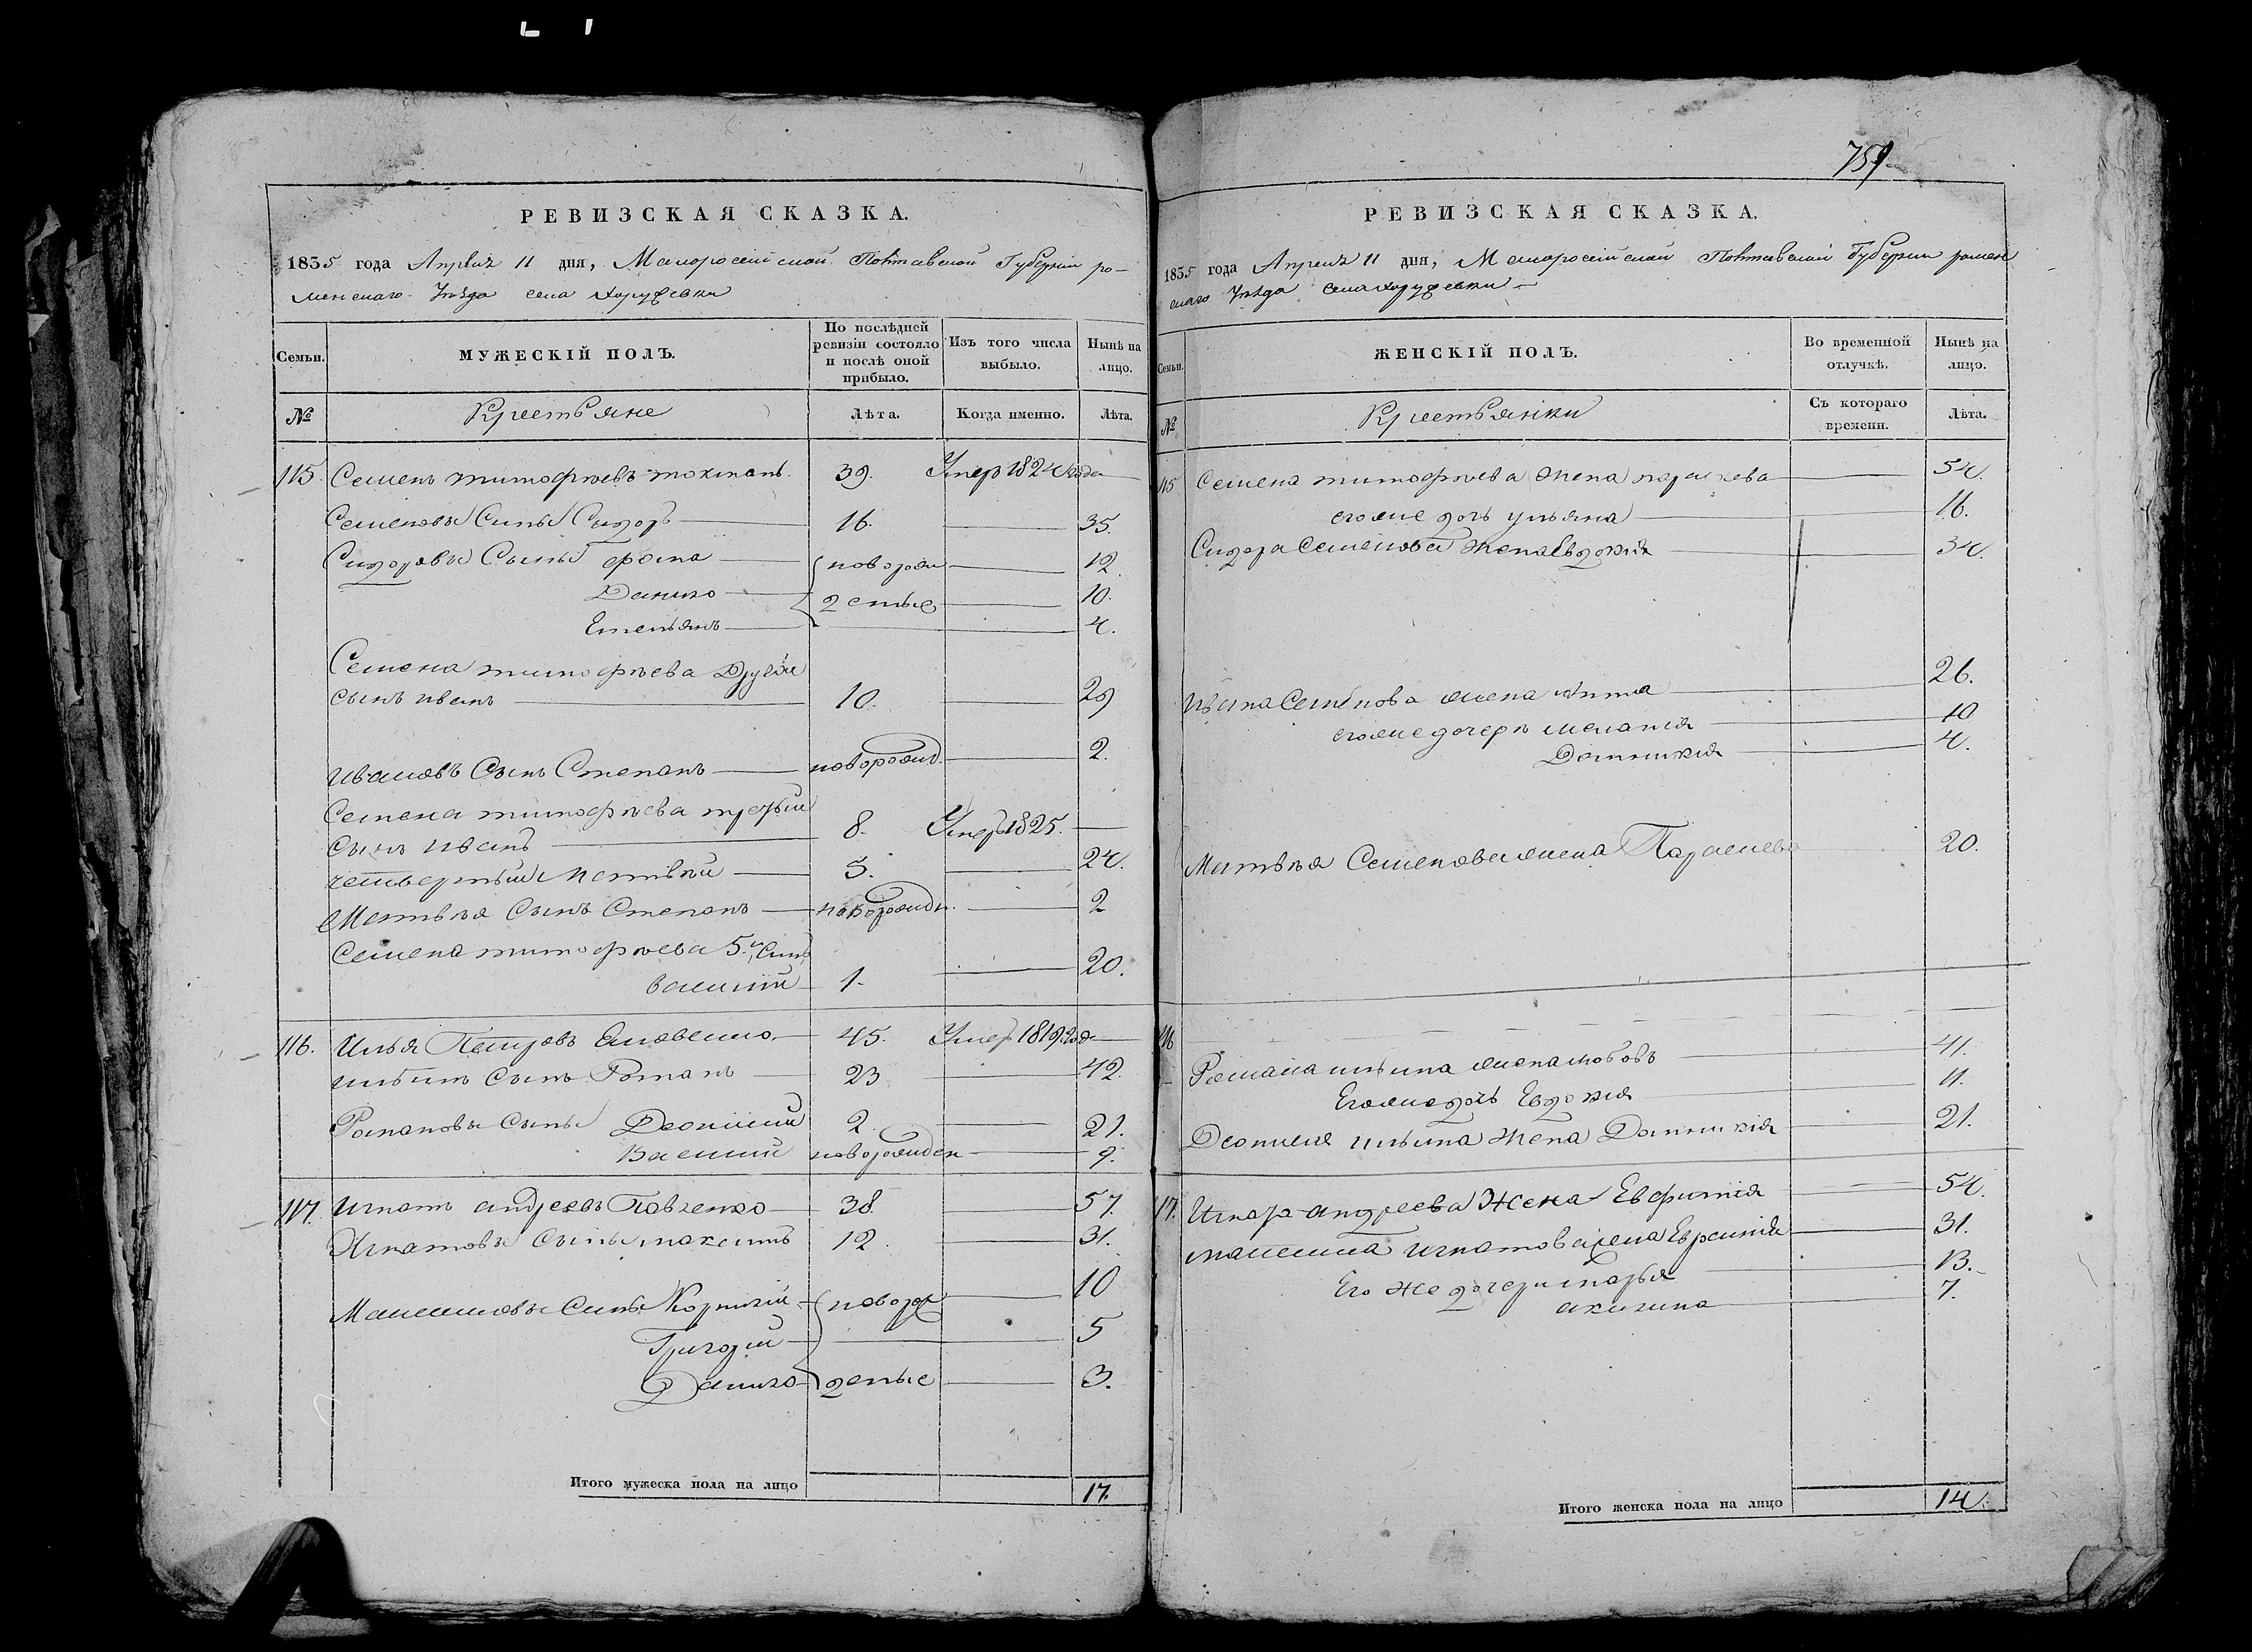 РЕВИЗСКАЯ СКАЗКА.
1835 года Апреля 11 дня, Малоросийской Полтавской Губернии ро-
менскаго Уезда села Хоружевки
Семьи.
МУЖЕСКІЙ ПОЛЪ.
По послѣдней ревизіи состояло и послѣ оной прибыло.
Изъ того числа выбыло.
Нынѣ на лицо.
№
Крестьяне
Лѣта.
Когда именно.
Лѣта.
115. Семенъ тимофѣевъ 39. Умеръ 1824 года
Семеновы Сины Сидоръ 16. 35.
Сидоровы Сыны фома новорож 12.
Данило денные 10.
Емельянъ 4.
Семена тимофѣева Другой
сынъ иванъ 10. 29
ивановъ Сынъ Степанъ новорожд. 2.
Семена тимофѣева третьи
Сынъ иванъ 8. Умеръ 1825.
четвертый Матвѣй 5. 24.
Матвѣя Сынъ Степанъ новорожден. 2
Семена тимофѣева 5й Синъ
василий 1. 20.
116. Илья Петровъ 45. Умеръ 1819 года
ильинъ Сынъ Романъ 23 42.
Романовы Сыны Деонисий 2. 21.
Василий новорожден 9.
117. Игнатъ андреевъ Павленко 38 57.
Игнатовы Сыны максимъ 12. 31.
Максимовы Сины Корнилий новорож 10
Григорий 5
Данило денные 3.
Итого мужеска пола на лицо 17.
759
РЕВИЗСКАЯ СКАЗКА.
1835 года Апреля 11 дня, Малоросийской Полтавской Губернии ромен
скаго Уезда села хоружевки
Семьи.
ЖЕНСКІЙ ПОЛЪ.
Во временной отлучкѣ.
Нынѣ на лицо.
№
Крестьянки
Съ котораго времени.
Лѣта.
115 Семена тимофѣева жена параскева 54.
его же дочь ульяна 16.
Сидора Семенова жена Евдокия 34.
Ивана Семенова жена Анна 26.
его же дочери мелания 10
Домникия 4.
Матвѣя Семенова жена Параскева 20.
116
Романа ильина жена любовъ 41.
Его же дочь Евдокия 11.
Деонисия ильина жена Домникия 21.
117. Игната андреева Жена Евфимия 54.
максима игнатова жена Евросиния 31.
Его же дочери марья 13.
акилина 7.
Итого женска пола на лицо 14.